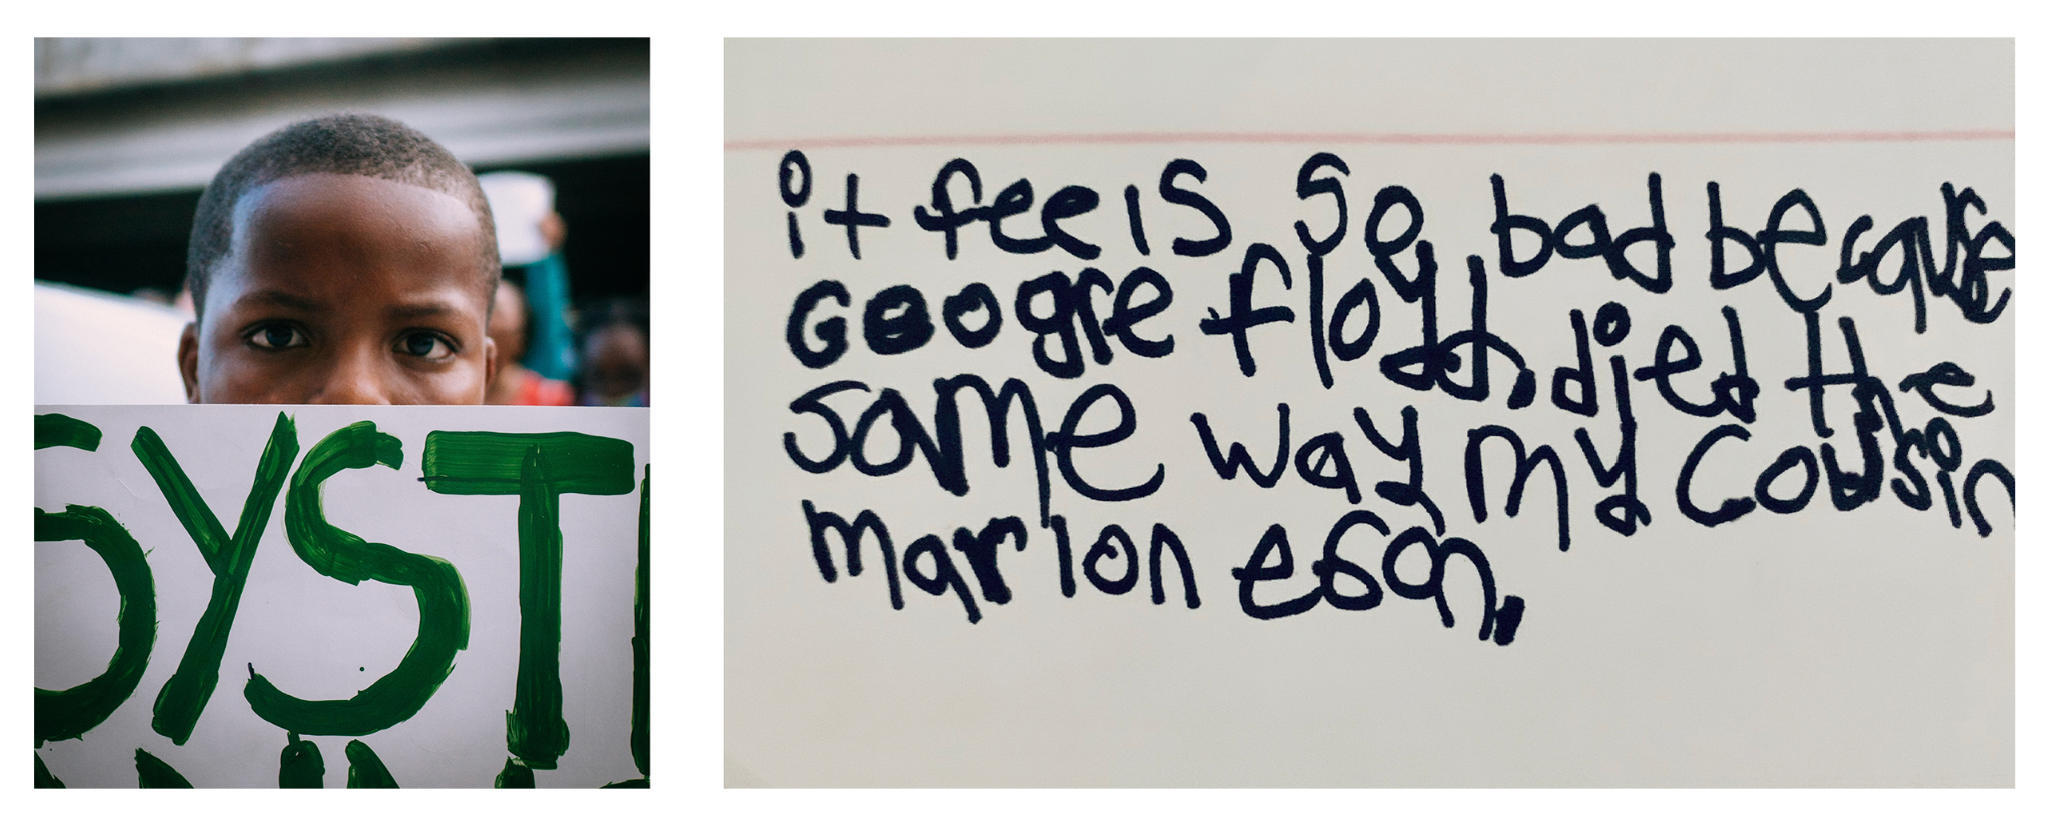 SYST
it feels so bad because
Googre floyd died the
same way my cousin
marlon eson,